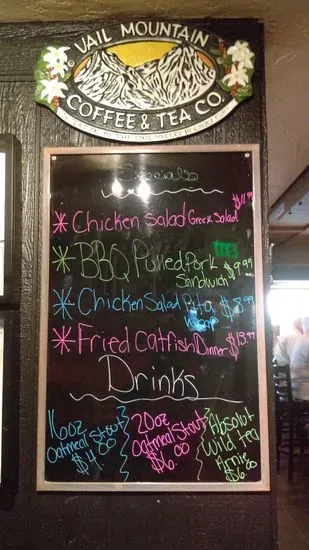 VAIL MOUNTAIN
COFFEE & TEA CO.
Specials
* Chicken Salad Greek Salad $11.99
* BBQ Pulled Pork
Sandwich $9.99
* Chicken Salad Pita $8.99
Wrap
* Fried Catfish Dinner $13.99
Drinks
16oz
Oatmeal Stout
$4.00
20oz
Oatmeal Stout
$6.00
Absolut
Wild Tea
Arnie
$6.00